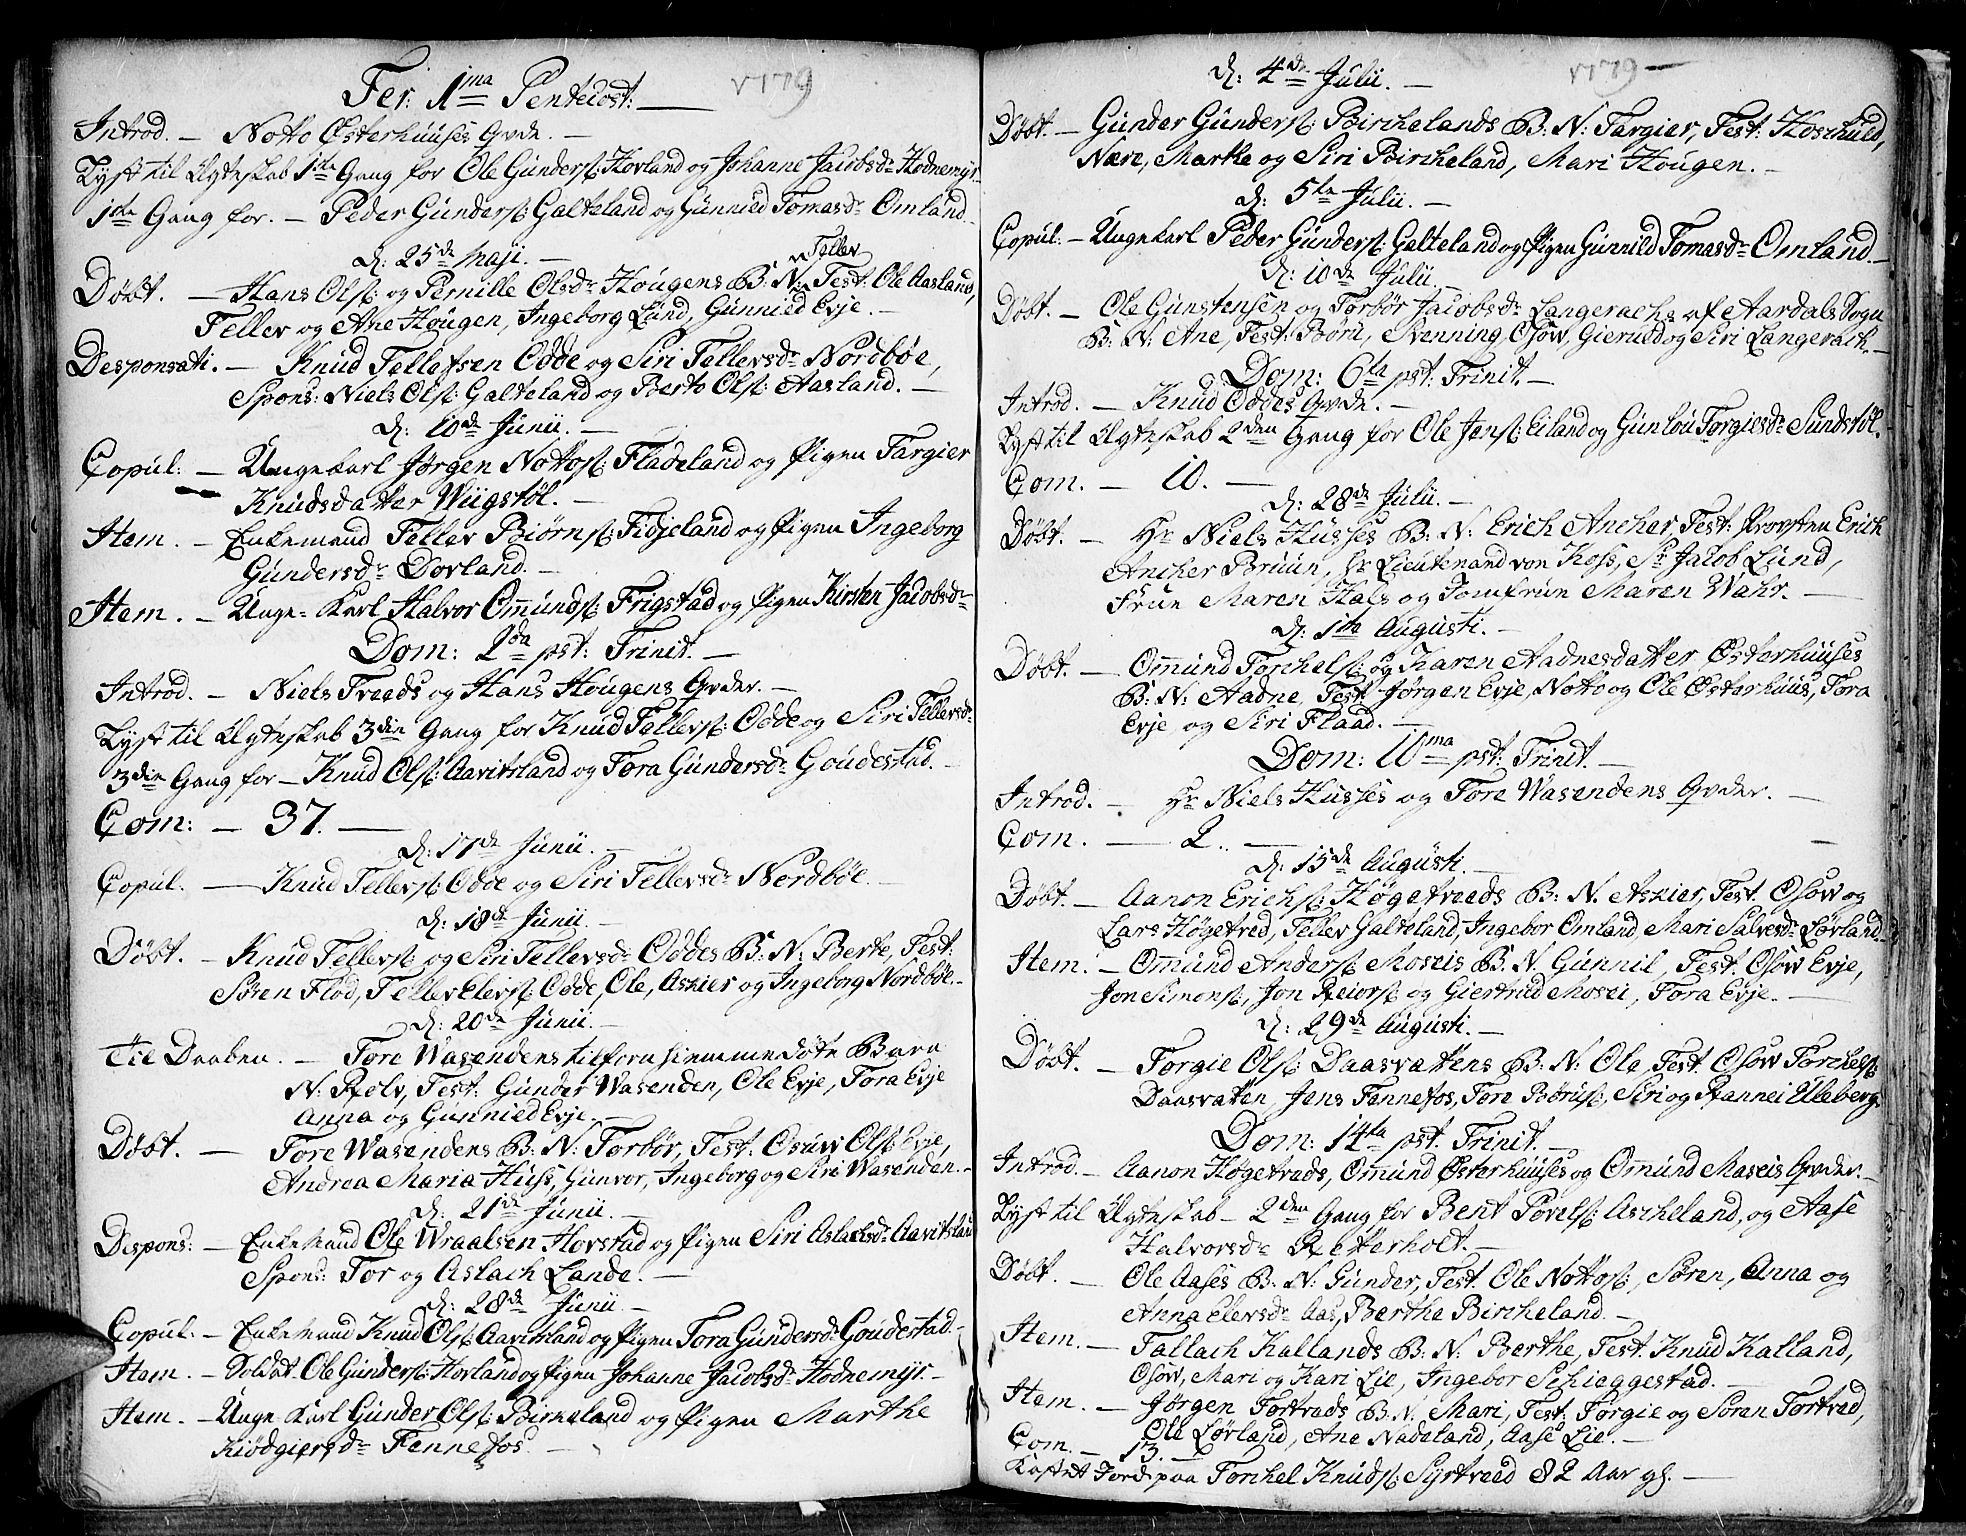 Fer: 1ma Pentecost: — 1779
Introd. — Notto Østerhuuses Qvde. —
Lyst til Ægteskab 1ste Gang for Ole Gunders: Hovland og Johanne Jacobsdr Hodnemyr.
1ste Gang for. — Peder Gunders: Galteland og Gunnild Tomasdr Omland.
d: 25de Maji. — Tellev
Döbt. — Hans Ols: og Pernille Olsdr Hougens B: N: Test: Ole Aasland,
Tellev og Ane Hougen, Ingeborg Lund, Gunnied Evje. —
Desponsati. — Knud Tellefsen Odde og Siri Tellevsdr Nordbøe,
Spons: Niels Ols: Galteland og Berto Ols: Aasland. —
d: 10de Junii. —
Copul: — Ungekarl Jørgen Nottos: Fladeland og Pigen Targier
Knudsdatter Wiigstøl. —
Item. — Enkemand Tellev Biörns: Fidjeland og Pigen Ingeborg
Gundersdr Dovland. —
Item. — Unge-Karl Halvor Omunds: Frigstad og Pigen Kirsten Jacobsdr
Dom: 2da pst: Trinit. —
Introd. — Niels Treeds og Hans Hougens Qvder. —
Lyst til Ægteskab 3die Gang for Knud Tellevs: Odde og Siri Tellevsdr
3die Gang for — Knud Ols: Aavitsland og Tora Gundersdr Goudestad.
Com: — 37. —
d: 17de Junii. —
Copul. — Knud Tellevs: Odde og Siri Tellevsdr Nordbøe. —
d: 18de Junii. —
Döbt. — Knud Tellevs: og Siri Tellevsdr Oddes B: N: Berte, Test:
Søren Flod, Tellev Elevs: Odde, Ole, Askier og Ingeborg Nordbøe. —
d: 20de Junii. —
Til Daaben. — Tore Wasendens tilforn hiemmedøte Barn
N. Rolv, Test: Gunder Wasenden, Ole Evje, Tora Evje
Anna og Gunnied Evje. —
Döbt. — Tore Wasendens B: N: Torbør, Test: Osuw Ols: Evje,
Andrea Maria Huss, Gunvor, Ingeborg og Siri Wasenden. —
d: 21de Junii. —
Despons: — Enkemand Ole Wraalsen Hovstad og Pigen Siri Aslachsdr Aavitsland
Spons: Tor og Aslach Lande. —
d: 28de Junii. —
Copul: — Enkemand Knud Ols: Aavitsland og Pigen Tora Gundersdr Goudestad. —
Item. — Soldat Ole Gunders: Hovland og Pigen Johanne Jacobsdr Hodnemyr. —
Item. — Unge Karl Gunder Ols: Birkeland og Pigen Marthe
Kiødgiersdr Fennefos. —
d: 4de Julii. — 1779 —
Döbt. — Gunder Gunders: Birchelands B: N: Targier, Test: Hoskuld,
Næri, Marthe og Siri Bircheland, Mari Hougen. —
d: 5te Julii. —
Copul: — Ungekarl Peder Gunders: Galteland og Pigen Gunnild Tomasdr Omland. —
d: 10de Julii. —
Döbt. — Ole Gunstensen og Torbør Jacobsdr Langerachs af Aardals Sogn
B: N: Ane, Test: Boru, Svenning, Osow, Gierud og Siri Langerach. —
Dom: 6ta pst: Trinit. —
Introd. — Knud Oddes Qvde. —
Lyst til Ægteskab 2den Gang for Ole Jens: Eiland og Gunlou Torgiersdr Sundstøl.
Com. — 10. —
d: 28de Julii. —
Döbt. — Hr Niels Husses B: N: Erich Ancher, Test: Provsten Erich
Ancher Bruun, Hr Lieutenand von Koss, Sr Jacob Lund,
Frue Maren Hals og Jomfrue Maren Wahr. —
d: 1te Augusti. —
Döbt. — Omund Torchels: og Karen Aadnesdatter Østerhuuses
B: N: Aadne, Test. Jørgen Evje, Notto og Ole Østerhuus, Tora
Evje og Siri Flaad. —
Dom: 10ma pst: Trinit. —
Introd. — Hr Niels Husses og Tore Wasendens Qvder. —
Com. — 2. —
d: 15de Augusti. —
Döbt. — Aanon Erichs: Høgetveds B: N. Askier, Test. Osow og
Lars Høgetved, Tellev Galteland, Ingebor Omland, Mari Salvesdr Lövland. —
Item. — Omund Anders: Moseis B: N. Gunnil, Test. Osow Evje,
Jon Simons:, Jon Reiers: og Giertrud Mosei, Tora Evje. —
d: 29de Augusti. —
Döbt. — Torgie Ols: Daasvattens B: N: Ole, Test. Osow Torchels:
Daasvatten, Jens Fennefos, Tore Börus:, Siri og Rannei Uleberg.
Dom: 14ta pst: Trinit. —
Introd. — Aanon Høgetveds, Omund Østerhuuses og Omund Moseis Qvder. —
Lyst til Ægteskab — 2den Gang for Bent Povels: Ascheland, og Aase
Halvorsdr Retterholt. —
Döbt. — Ole Aases B: N: Gunder, Test. Ole Nottos:, Søren, Anna og
Anna Elevsdr Aas, Berthe Bircheland. —
Item. — Tallach Kallands B: N: Berthe, Test. Knud Kalland,
Osow, Mari og Kari Lie, Ingebor Schieggestad. —
Item. — Jørgen Tortveds B: N. Mari, Test: Torgie og Søren Tortved,
Ole Lövland, Ane Nadeland, Aase Lie. —
Com. — 13. —
Kastet Jord paa Torchel Knuds: Syrtveed 82 Aar gl. —